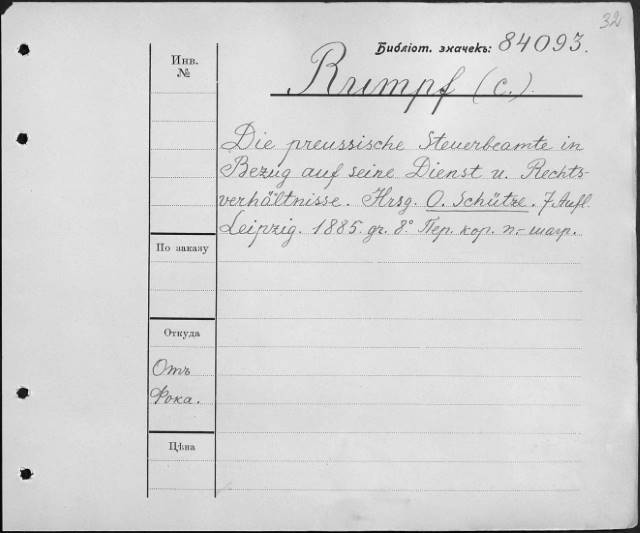 32
Библіот. значекъ: 84093.
Инв.
№
Rumpf (C.)
Die preussische Steuerbeamte in
Bezug auf seine Dienst u. Rechts-
verhältnisse. Hrsg. O. Schütze. 7 Aufl.
Leipzig. 1885. gr. 8° Пер. кор. п.-шагр.
По заказу
Откуда
Отъ
Фока.
Цѣна